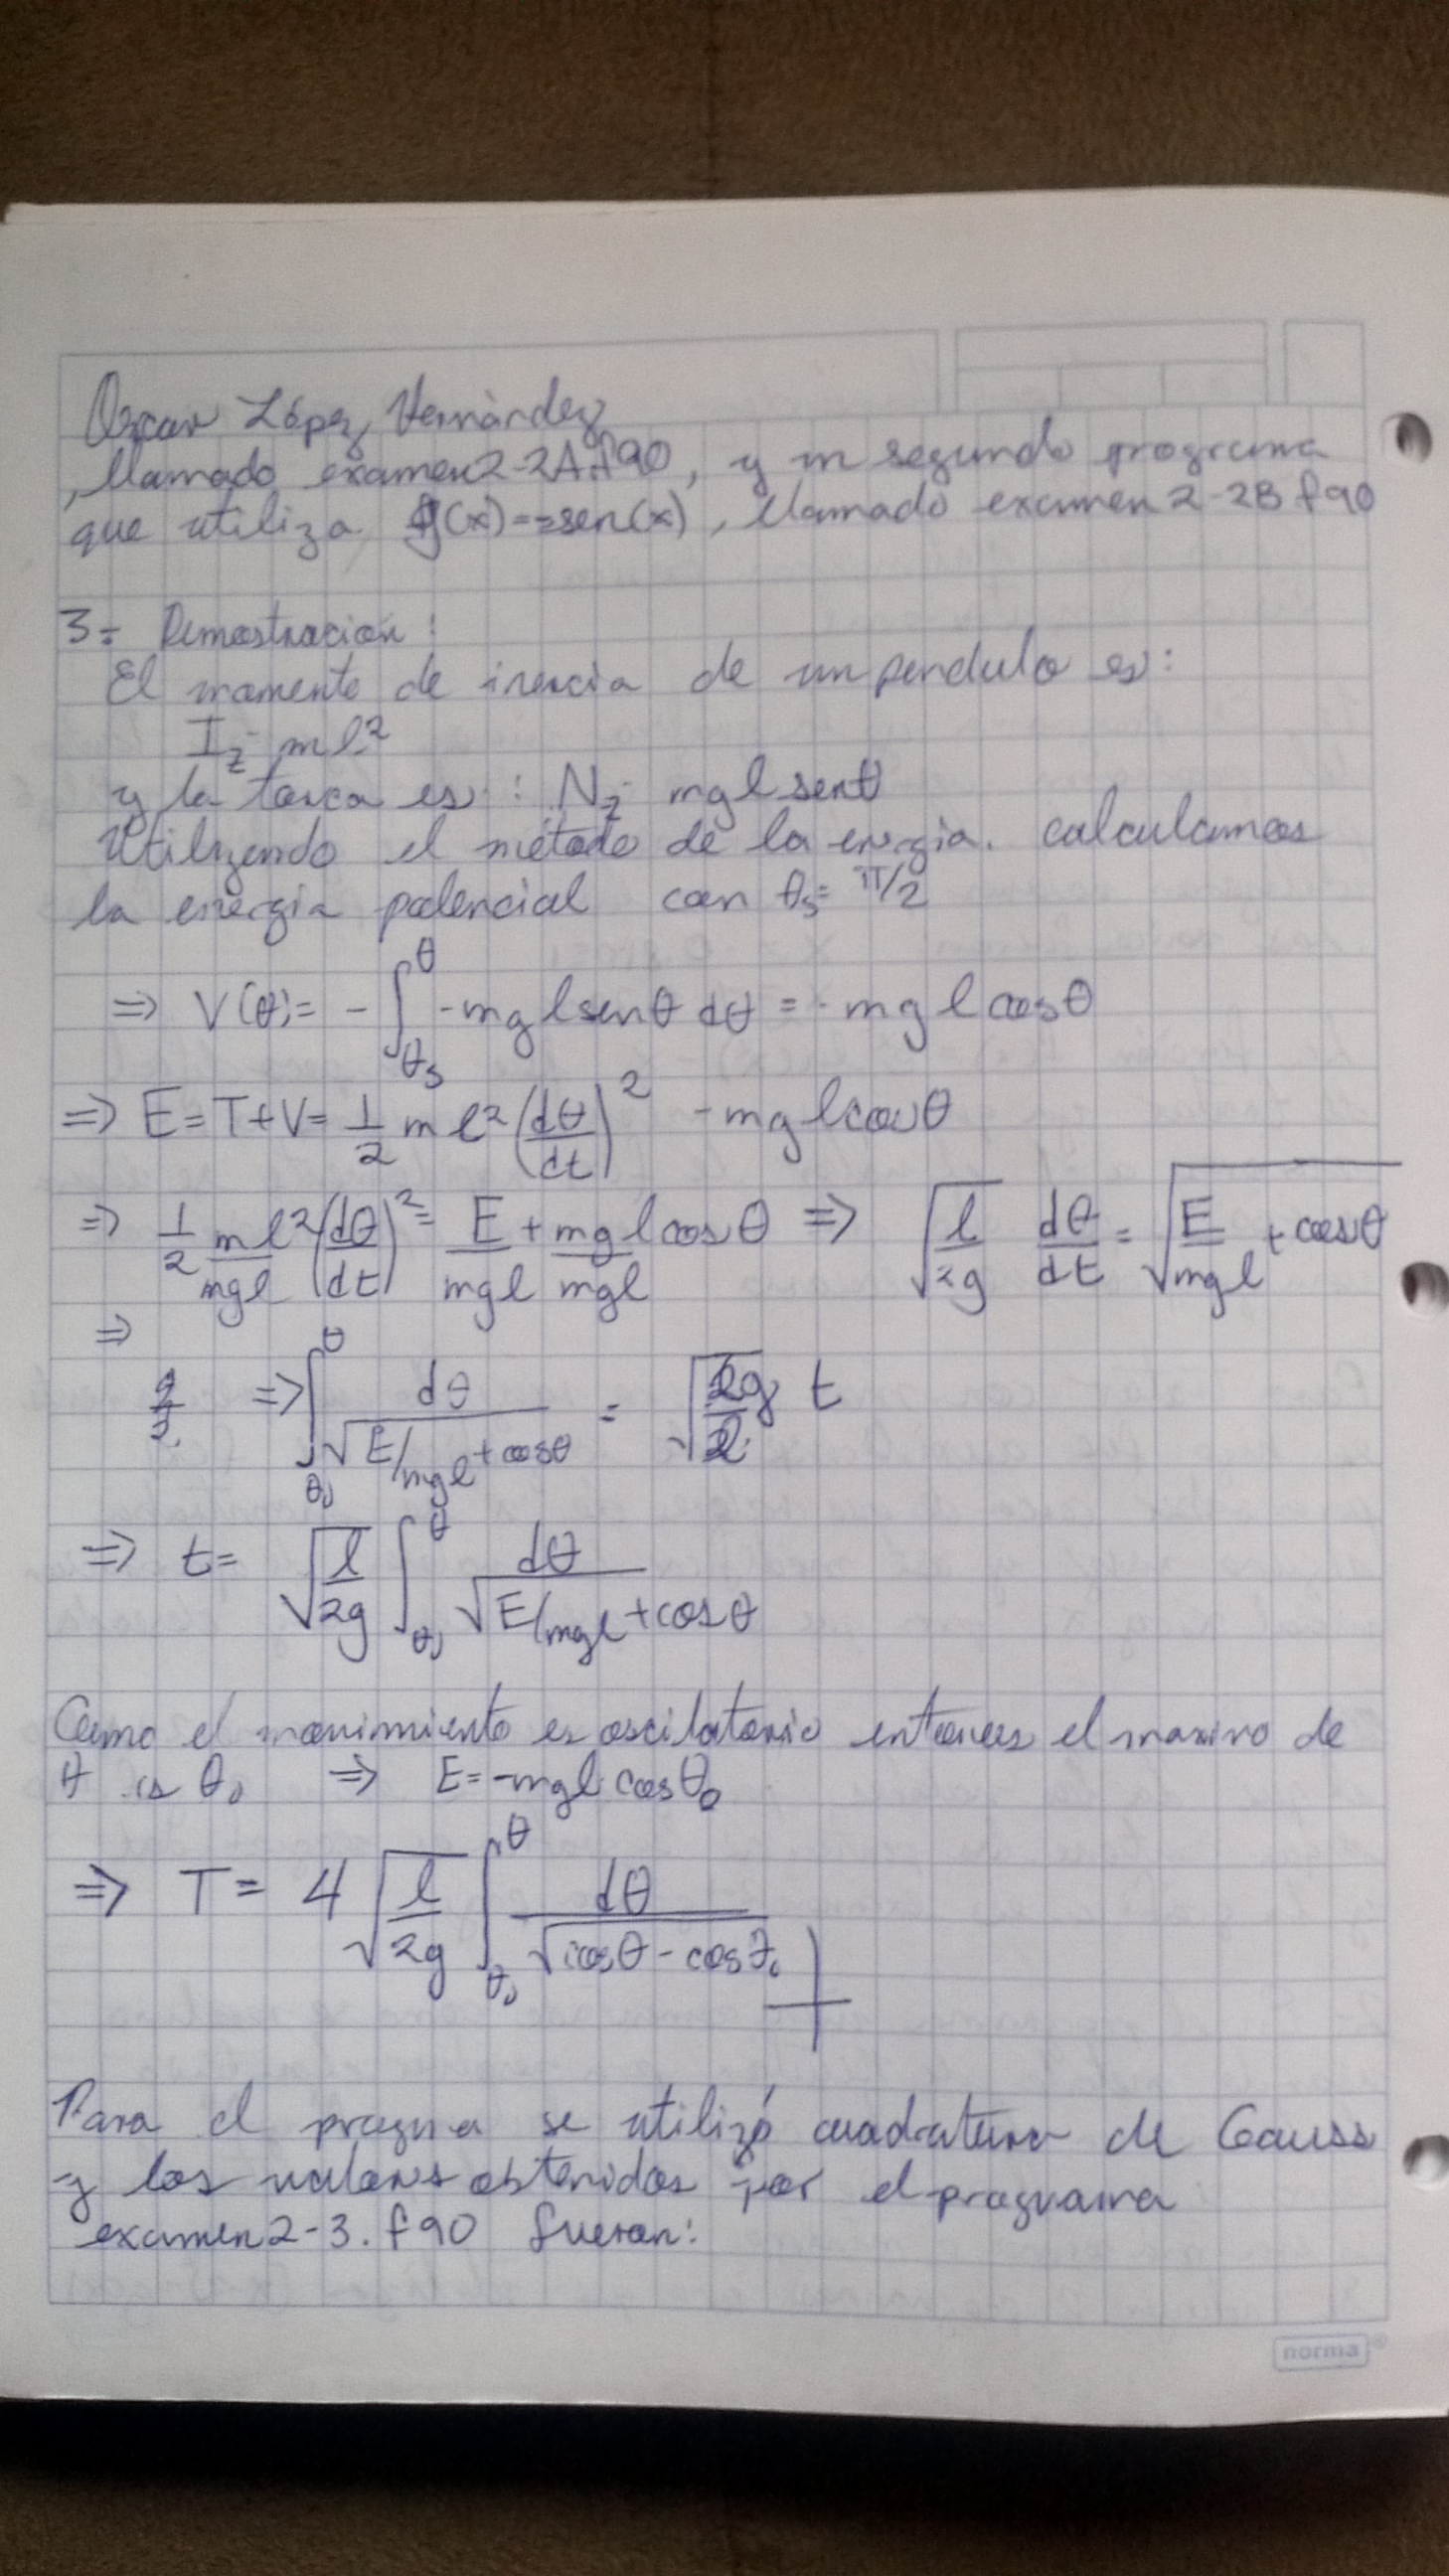 Oscar López Hernández
, llamado examen2-2A.f90, y un segundo programa
que utiliza g(x)=-sen(x), llamado examen2-2B f90
3.- Demostracion:
El momento de inercia de un pendulo es:
I_z = ml²
y la torca es: N_z = mgl senθ
Utilizendo el método de la energia. calculamos
la energia potencial con θ_s = π/2
⇒ V(θ) = -∫_{θ_s}^{θ} -mglsenθ dθ = -mglcosθ
⇒ E = T+V = 1/2 ml² (dθ/dt)² - mglcosθ
⇒ 1/2 ml²/mgl (dθ/dt)² = E/mgl + mglcosθ/mgl ⇒ √(l/2g) dθ/dt = √(E/mgl + cosθ)
⇒
⇒ ∫_{θ₀}^{θ} dθ/√(E/mgl + cosθ) = √(2g/l) t
⇒ t = √(l/2g) ∫_{θ₀}^{θ} dθ/√(E/mgl + cosθ)
Como el movimiento es oscilatorio entonces el maximo de
θ is θ₀ ⇒ E = -mgl cosθ₀
⇒ T = 4 √(l/2g) ∫_{θ₀}^{θ} dθ/√(cosθ - cosθ₀)
Para el progma se utilizó cuadratura de Gauss
y los valores obtenidos por el programa
examen2-3.f90 fueron:
norma®